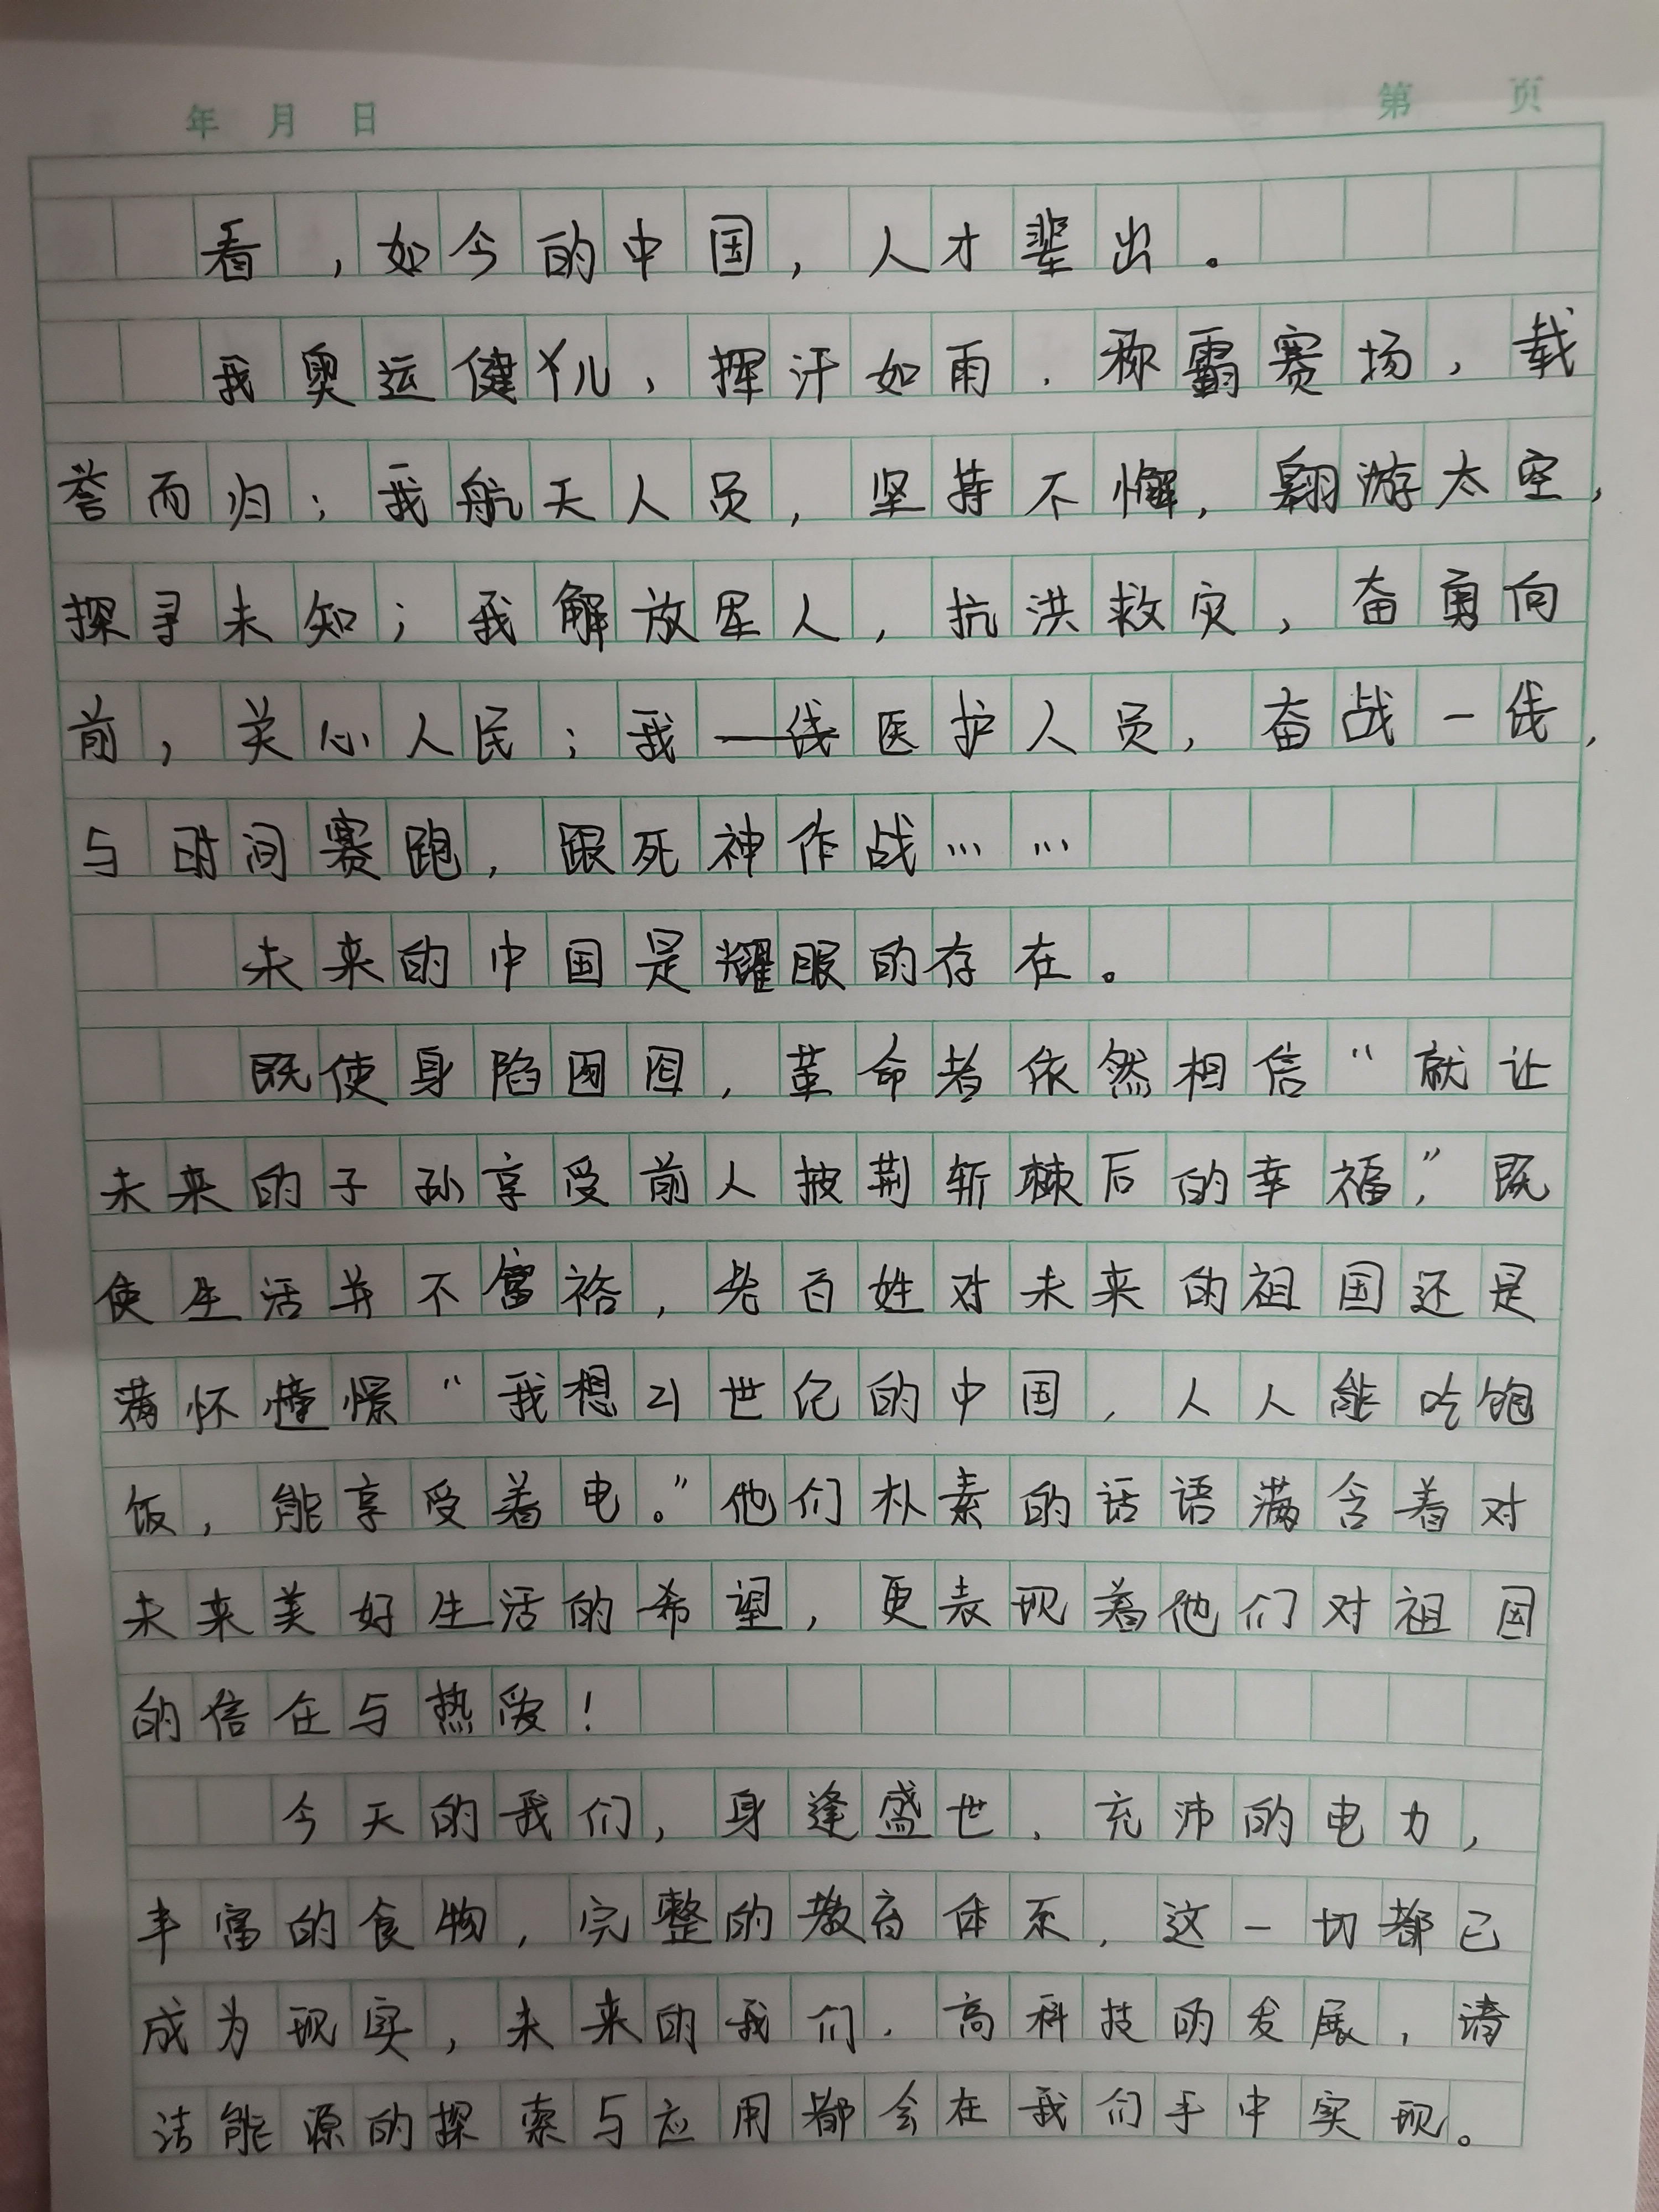 年 月 日 第 页
看，如今的中国，人才辈出。
我奥运健儿，挥汗如雨，称霸赛场，载
誉而归；我航天人员，坚持不懈，翱游太空，
探寻未知；我解放军人，抗洪救灾，奋勇向
前，关心人民；我一线医护人员，奋战一线，
与时间赛跑，跟死神作战……
未来的中国是耀眼的存在。
既使身陷囹圄，革命者依然相信“就让
未来的子孙享受前人披荆斩棘后的幸福，”既
使生活并不富裕，老百姓对未来的祖国还是
满怀憧憬“我想21世纪的中国，人人能吃饱
饭，能享受着电。”他们朴素的话语满含着对
未来美好生活的希望，更表现着他们对祖国
的信任与热爱！
今天的我们，身逢盛世，充沛的电力，
丰富的食物，完整的教育体系，这一切都已
成为现实，未来的我们，高科技的发展，清
洁能源的探索与应用都会在我们手中实现。